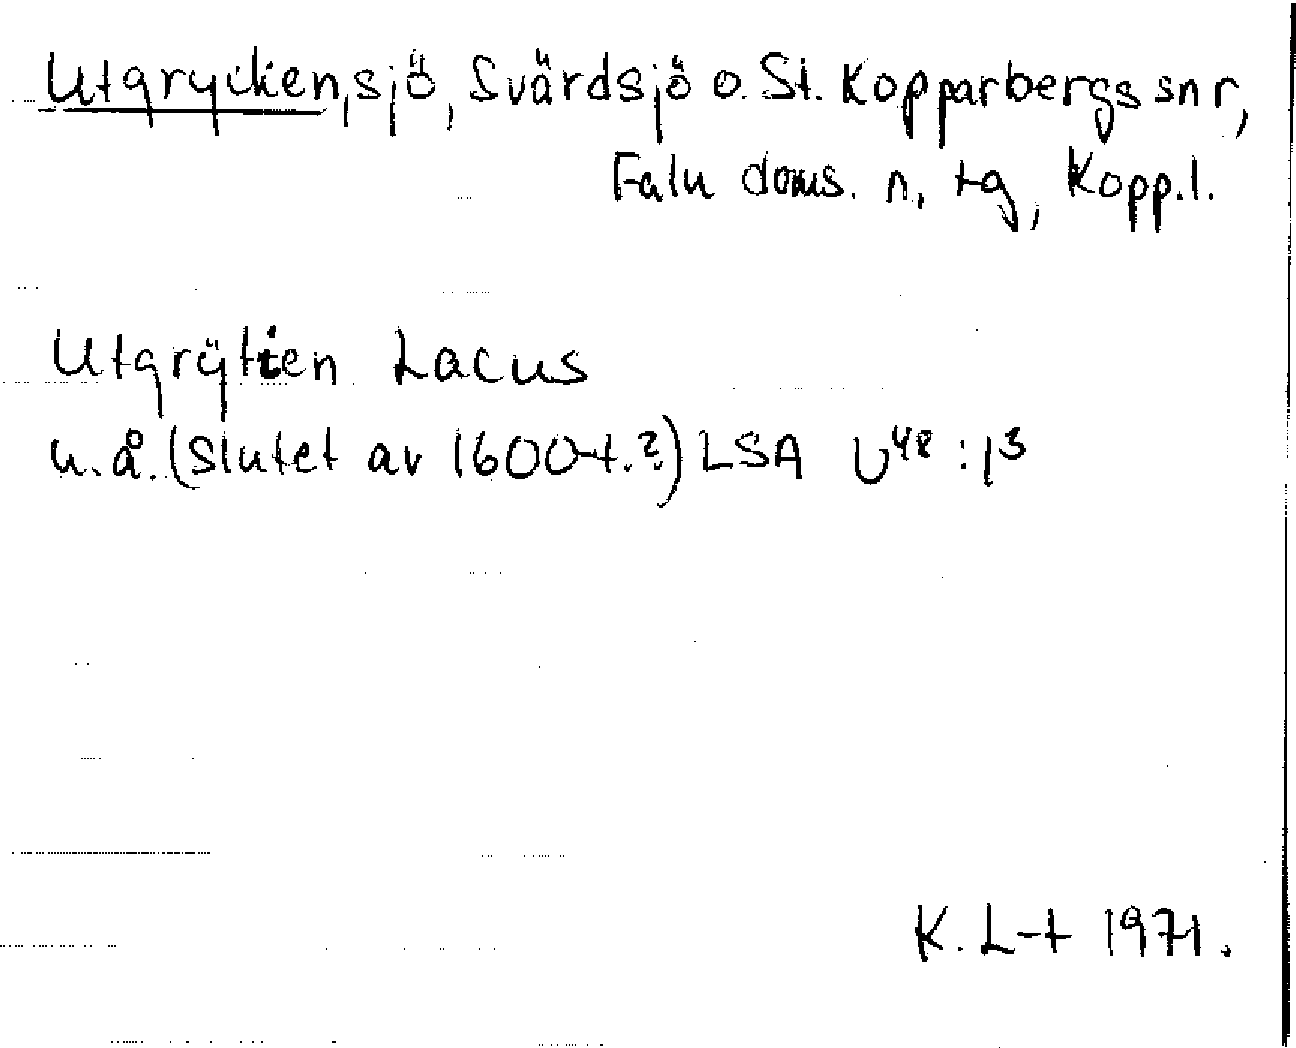 Utgrycken, sjö, Svärdsjö o. St. Kopparbergs snr,
Falu doms. n. tg, Kopp.l.
Utgrÿtien Lacus
u.å. (slutet av 1600-t.?) LSA U⁴⁸:1³
K. L-t 1971.